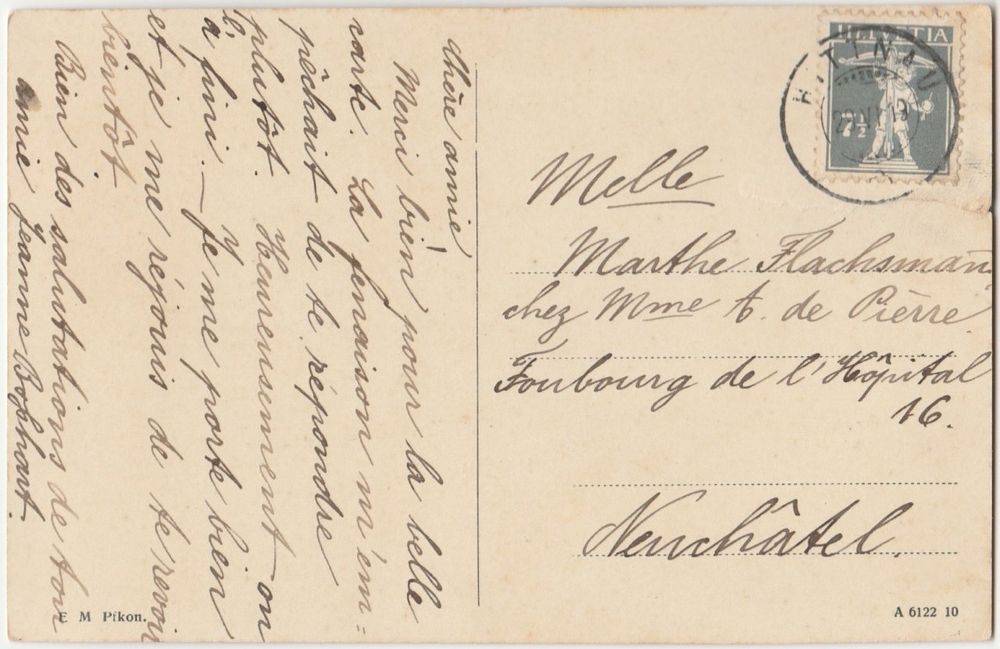 Chère amie
Merci bien pour la belle
carte. La fenaison m'em=
pêchait de te répondre
plutôt. Heureusement on
l'y a fini. – Je me porte bien
et je me réjouis de te revoir
bientôt.
Bien des salutations de ton
amie Jeanne Boßhart.
E M Pfkon.
HELVETIA
7½
HITTNAU
Melle
Marthe Flachsmann
chez Mme t. de Pierre
Foubourg de l'Hôpital
16.
Neuchâtel.
A 6122 10